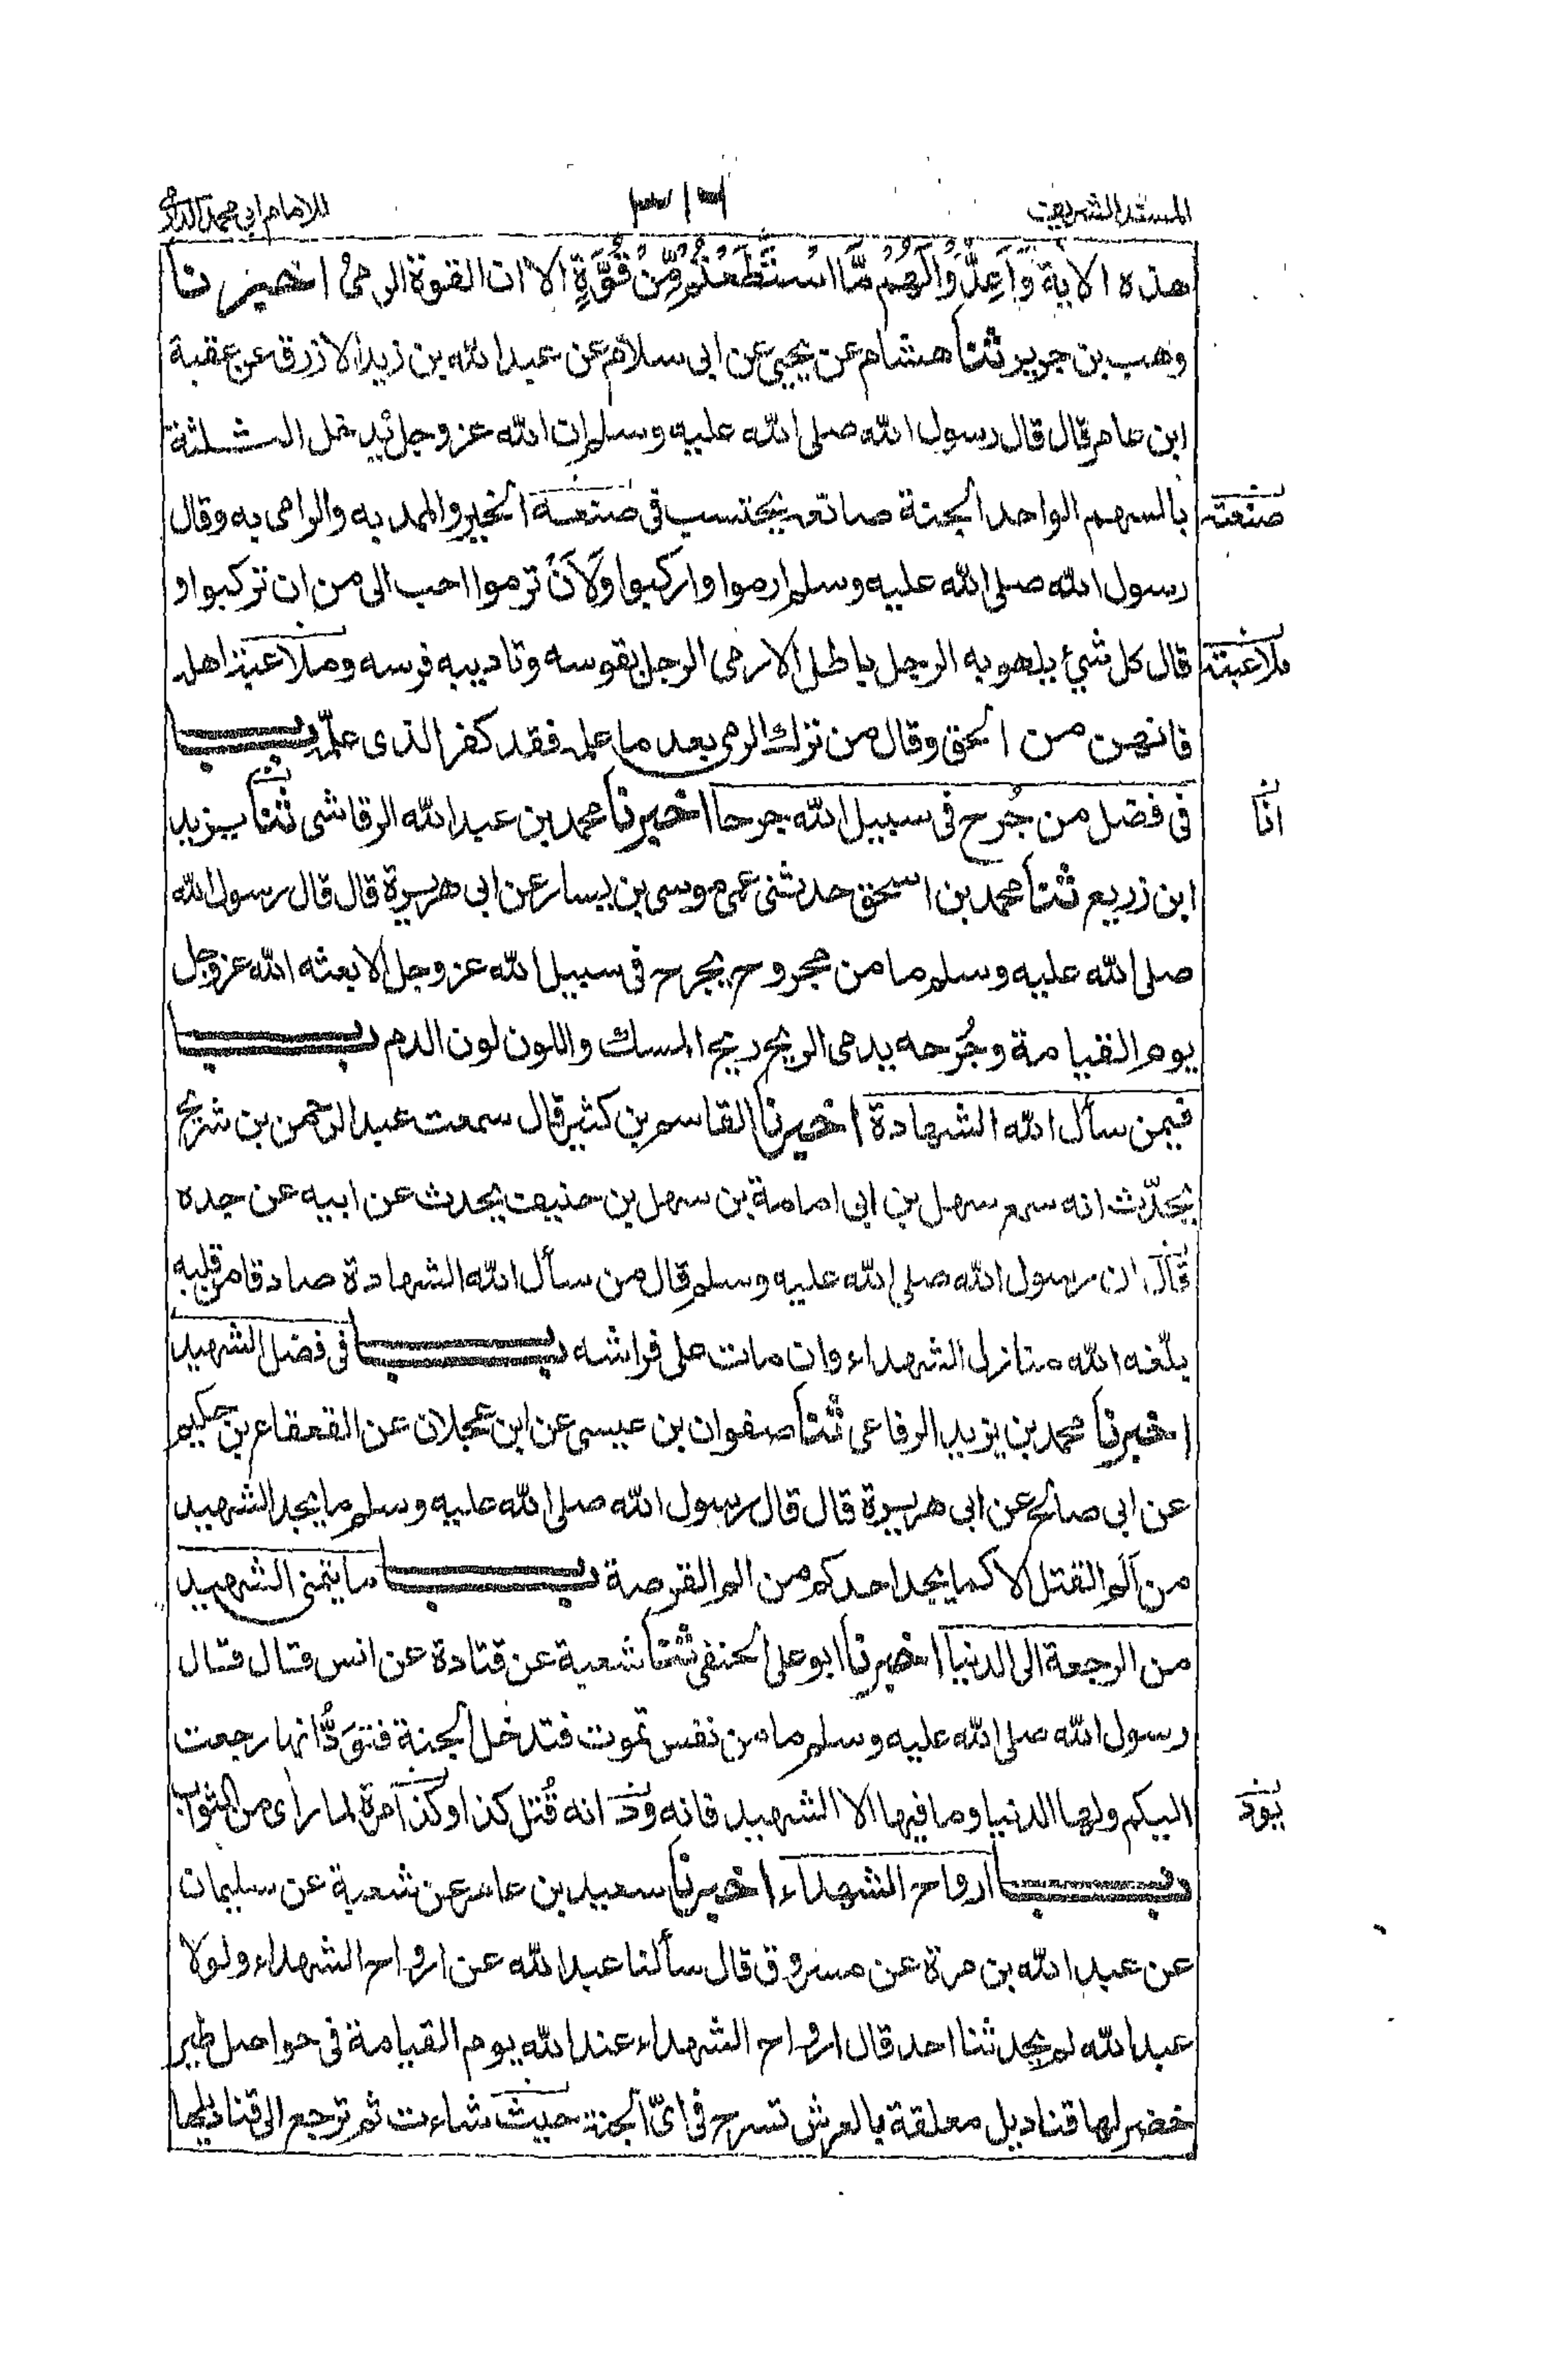 المسند الشريف ٣١٦ للامام ابي محمد الدارمي
هذه الاية وَاَعِدُّوْا لَهُمْ مَّا اسْتَطَعْتُمْ مِّنْ قُوَّةٍ الا ان القوة الرمى اخبرنا
وهب بن جرير ثنا هشام عن يحيى عن ابى سلام عن عبد الله بن زيد الازرق عن عقبة
ابن عامر قال قال رسول الله صلى الله عليه وسلم ان الله عز وجل يدخل الثلثة
بالسهم الواحد الجنة صانعه يحتسب فى صنعة الخير والممد به والرامى به وقال
صنعته
رسول الله صلى الله عليه وسلم ارموا واركبوا وَلَاَنْ ترموا احب الى من ان تركبوا و
قال كل شئ يلهو به الرجل باطل الا رمى الرجل بقوسه وتاديبه فرسه وملاعبة اهله
ملاعبته
فانهن من الحق وقال من ترك الرمى بعد ما علمه فقد كفر الذى علّمه باب
فى فضل من جُرح فى سبيل الله جرحا اخبرنا محمد بن عبد الله الرقاشى ثنا يزيد
انا
ابن زريع ثنا محمد بن اسحق حدثنى عمى موسى بن يسار عن ابى هريرة قال قال رسول الله
صلى الله عليه وسلم ما من مجروح يجرح فى سبيل الله عز وجل الا بعثه الله عز وجل
يوم القيامة وجُرحه يدمى الريح ريح المسك واللون لون الدم باب
فيمن سأل الله الشهادة اخبرنا القاسم بن كثير قال سمعت عبد الرحمن بن شريح
يحدّث انه سمع سهل بن ابى امامة بن سهل بن حنيف يحدث عن ابيه عن جده
قال ان رسول الله صلى الله عليه وسلم قال من سأل الله الشهادة صادقا من قلبه
بلّغه الله منازل الشهداء وان مات على فراشه باب فى فضل الشهيد
اخبرنا محمد بن يزيد الرفاعى ثنا صفوان بن عيسى عن ابن عجلان عن القعقاع بن حكيم
عن ابى صالح عن ابى هريرة قال قال رسول الله صلى الله عليه وسلم ما يجد الشهيد
من اَلم القتل الا كما يجد احدكم من الم القرصة باب ما يتمنى الشهيد
من الرجعة الى الدنيا اخبرنا ابو على الحنفى ثنا شعبة عن قتادة عن انس قال قال
رسول الله صلى الله عليه وسلم ما من نفس تموت فتدخل الجنة فتَوَدُّ انها رجعت
اليكم ولها الدنيا وما فيها الا الشهيد فانه ودّ انه قُتل كذا وكذا مرة لما رأى من الثواب
يود
باب ارواح الشهداء اخبرنا سعيد بن عامر عن شعبة عن سليمان
عن عبد الله بن مرة عن مسروق قال سألنا عبد الله عن ارواح الشهداء ولولا
عبد الله لم يحدثنا احد قال ارواح الشهداء عند الله يوم القيامة فى حواصل طير
خضر لها قناديل معلقة بالعرش تسرح فى اىّ الجنة حيث شاءت ثم ترجع الى قناديلها